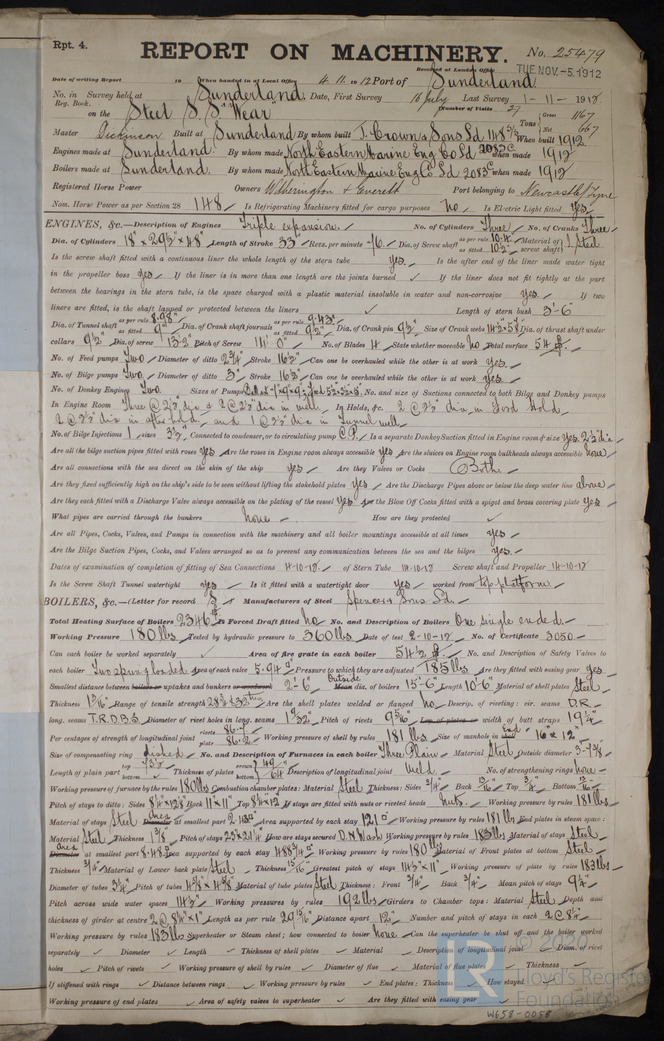 Rpt. 4.
REPORT ON MACHINERY.
No. 25479
Received at London Office
TUE. NOV. -5. 1912
Date of writing Report 19 When handed in at Local Office 4. 11. 1912 Port of Sunderland
No. in Survey held at Sunderland. Date, First Survey 16 July Last Survey 1-11-1912
Reg. Book. Number of Visits 27
on the Steel S.S "Wear" Tons Gross 1167 Net 667
Master Dickinson Built at Sunderland By whom built J. Crown & Sons Ld When built 1912
Engines made at Sunderland By whom made North Eastern Marine Eng Co Ld when made 1912
Boilers made at Sunderland By whom made North Eastern Marine Eng Co Ld when made 1912
Registered Horse Power Owners Witherington & Everett Port belonging to Newcastle/Tyne
Nom. Horse Power as per Section 28 148 Is Refrigerating Machinery fitted for cargo purposes no Is Electric Light fitted Yes
ENGINES, &c.—Description of Engines Triple expansion. No. of Cylinders Three No. of Cranks Three
Dia. of Cylinders 18" x 29½" x 48" Length of Stroke 33" Revs. per minute 76 Dia. of Screw shaft as per rule as fitted Material of screw shaft Steel
Is the screw shaft fitted with a continuous liner the whole length of the stern tube yes. Is the after end of the liner made water tight
in the propeller boss yes If the liner is in more than one length are the joints burned If the liner does not fit tightly at the part
between the bearings in the stern tube, is the space charged with a plastic material insoluble in water and non-corrosive Yes. If two
liners are fitted, is the shaft lapped or protected between the liners Length of stern bush 3'-6"
Dia. of Tunnel shaft as per rule 8.98" as fitted 9" Dia. of Crank shaft journals as per rule 9.43" as fitted 9½" Dia. of Crank pin 9½" Size of Crank webs Dia. of thrust shaft under
collars 9½" Dia. of screw 13'-2" Pitch of Screw 14'-0" No. of Blades 4 State whether moveable no Total surface 54
No. of Feed pumps Two Diameter of ditto 2¾" Stroke 16½" Can one be overhauled while the other is at work yes
No. of Bilge pumps Two Diameter of ditto 3" Stroke 16½" Can one be overhauled while the other is at work yes
No. of Donkey Engines Two Sizes of Pumps No. and size of Suctions connected to both Bilge and Donkey pumps
In Engine Room Three @ 2½" dia & 2 @ 2½" dia in well. In Holds, &c. 2 @ 2½" dia in Ford hold,
2 @ 2½" dia in after hold, and 1 @ 2½" dia in Tunnel well
No. of Bilge Injections 1 sizes 3½" Connected to condenser, or to circulating pump C.P. Is a separate Donkey Suction fitted in Engine room & size Yes. 2½" dia
Are all the bilge suction pipes fitted with roses yes Are the roses in Engine room always accessible yes Are the sluices on Engine room bulkheads always accessible none
Are all connections with the sea direct on the skin of the ship yes Are they Valves or Cocks Both
Are they fixed sufficiently high on the ship's side to be seen without lifting the stokehold plates yes Are the Discharge Pipes above or below the deep water line above
Are they each fitted with a Discharge Valve always accessible on the plating of the vessel yes Are the Blow Off Cocks fitted with a spigot and brass covering plate yes
What pipes are carried through the bunkers none How are they protected
Are all Pipes, Cocks, Valves, and Pumps in connection with the machinery and all boiler mountings accessible at all times yes
Are the Bilge Suction Pipes, Cocks, and Valves arranged so as to prevent any communication between the sea and the bilges yes.
Dates of examination of completion of fitting of Sea Connections 11-10-12. of Stern Tube 14-10-12 Screw shaft and Propeller 14-10-12
Is the Screw Shaft Tunnel watertight yes Is it fitted with a watertight door yes worked from top platform
BOILERS, &c.—(Letter for record S) Manufacturers of Steel Spencer & Sons Ld.
Total Heating Surface of Boilers 2346 Is Forced Draft fitted no No. and Description of Boilers One single ended.
Working Pressure 180 lbs Tested by hydraulic pressure to 360 lbs Date of test 2-10-12 No. of Certificate 3050.
Can each boiler be worked separately Area of fire grate in each boiler 54½ No. and Description of Safety Valves to
each boiler Two spring loaded Area of each valve 5.94 Pressure to which they are adjusted 185 lbs Are they fitted with easing gear yes
Smallest distance between boilers or uptakes and bunkers or woodwork 2'-6" Outside Mean dia. of boilers 15'-6" Length 10'-6" Material of shell plates Steel
Thickness Range of tensile strength Are the shell plates welded or flanged no Descrip. of riveting: cir. seams D.R.
long. seams T.R.D.B.S. Diameter of rivet holes in long. seams Pitch of rivets Lap of plates or width of butt straps 19¼"
Per centages of strength of longitudinal joint rivets plate 86.2 Working pressure of shell by rules 181 lbs Size of manhole in end 16" x 12"
Size of compensating ring flanged No. and Description of Furnaces in each boiler Three Plain Material Steel Outside diameter
Length of plain part top bottom Thickness of plates crown bottom Description of longitudinal joint weld No. of strengthening rings none
Working pressure of furnace by the rules 180 lbs Combustion chamber plates: Material Steel Thickness: Sides Back Top Bottom
Pitch of stays to ditto: Sides Back 11" x 11" Top If stays are fitted with nuts or riveted heads nuts. Working pressure by rules 181 lbs
Material of stays Steel Area at smallest part Area supported by each stay 121 Working pressure by rules 181 lbs End plates in steam space:
Material Steel Thickness Pitch of stays How are stays secured D.N. Wash Working pressure by rules 183 lbs Material of stays Steel
Area at smallest part Area supported by each stay Working pressure by rules 180 lbs Material of Front plates at bottom Steel
Thickness Material of Lower back plate Steel Thickness Greatest pitch of stays Working pressure of plate by rules 183 lbs
Diameter of tubes 3¼" Pitch of tubes Material of tube plates Steel Thickness: Front Back Mean pitch of stays
Pitch across wide water spaces 14½" Working pressures by rules 192 lbs Girders to Chamber tops: Material Steel Depth and
thickness of girder at centre Length as per rule Distance apart 12" Number and pitch of stays in each
Working pressure by rules 183 lbs Superheater or Steam chest; how connected to boiler none Can the superheater be shut off and the boiler worked
separately Diameter Length Thickness of shell plates Material Description of longitudinal joint Diam. of rivet
holes Pitch of rivets Working pressure of shell by rules Diameter of flue Material of flue plates Thickness
If stiffened with rings Distance between rings Working pressure by rules End plates: Thickness How stayed
Working pressure of end plates Area of safety valves to superheater Are they fitted with easing gear
Lloyd's Register
Foundation
W658-0058